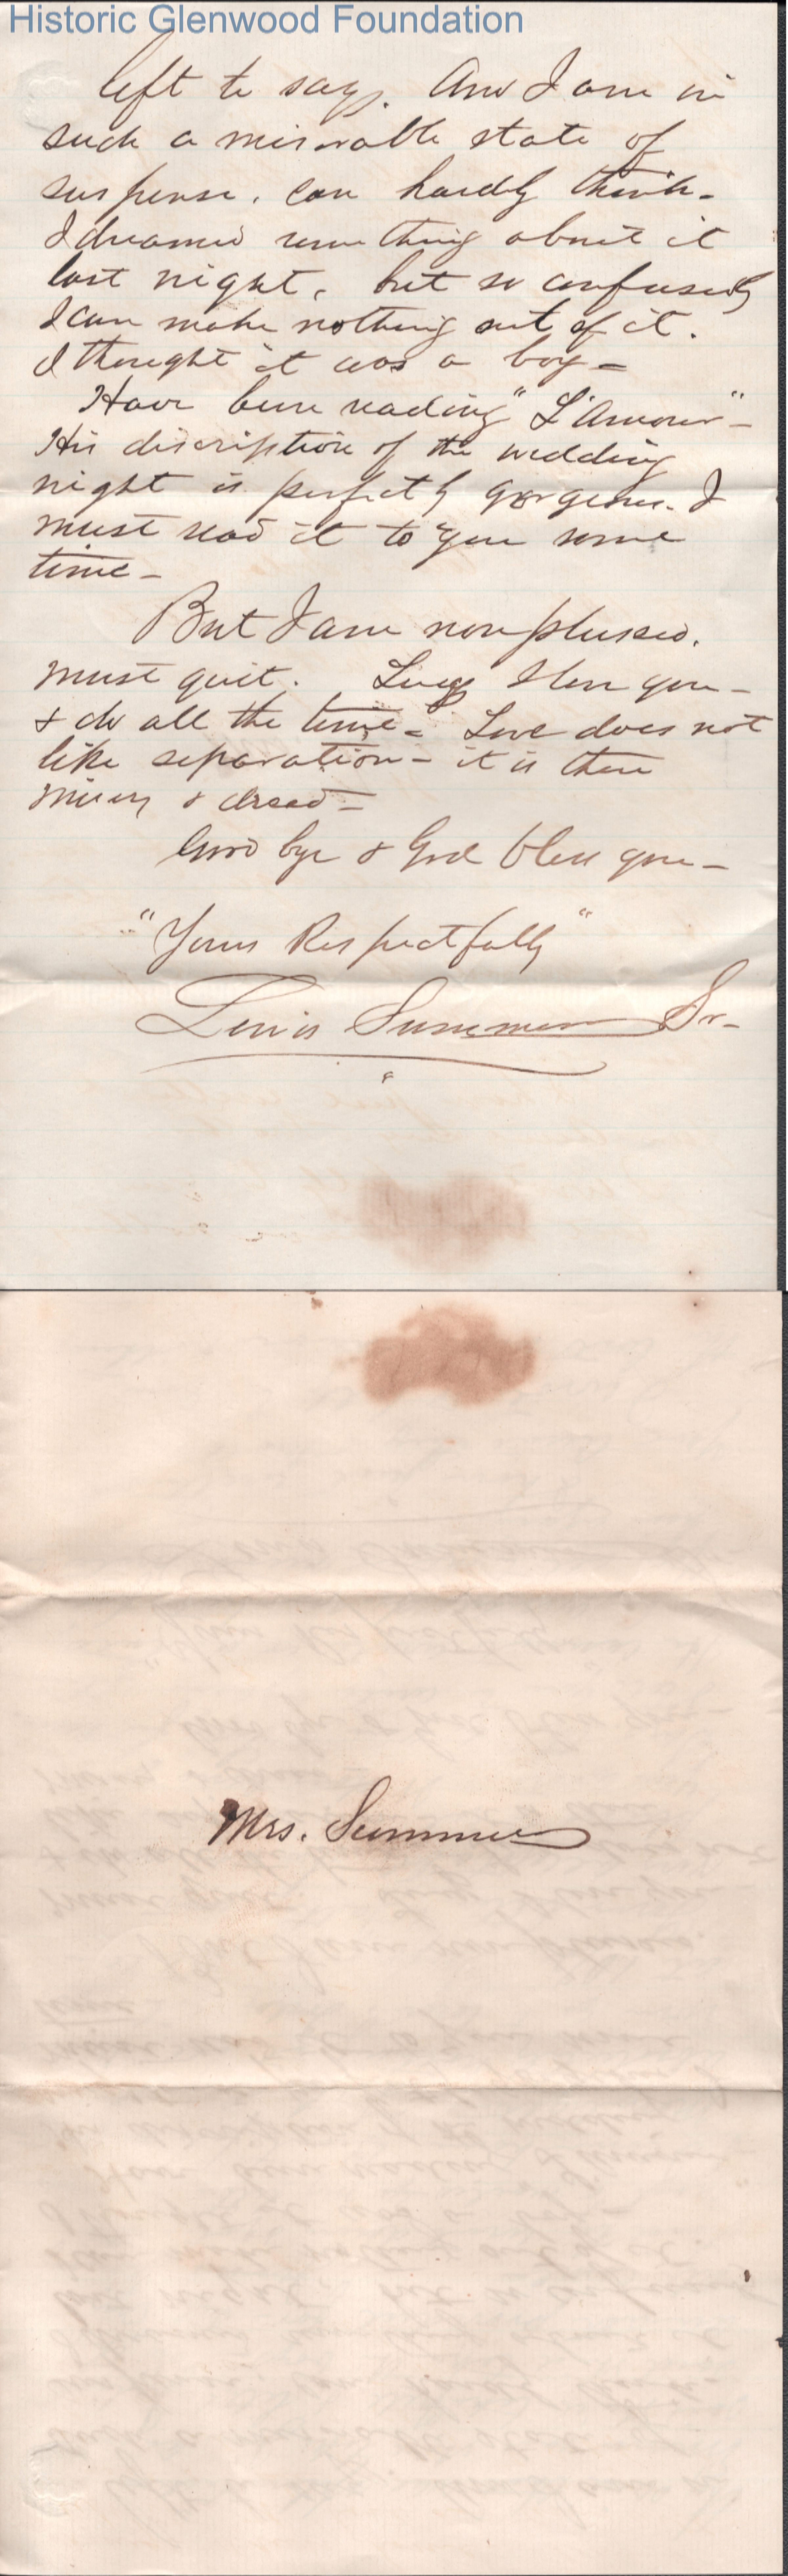 Historic Glenwood Foundation
left to say. And I am in
such a miserable state of
suspense, can hardly think.
I dreamed something about it
last night, but so confusedly
I can make nothing out of it.
I thought it was a boy -
Have been reading "L'Amour" -
His discription of the wedding
night is perfectly gorgeous. I
must read it to you some
time -
But I am nonplussed.
must quit. Lucy I love you -
& do all the time - Love does not
like separation - it is then
misery & dread -
Good bye & God bless you -
"Yours Respectfully"
Lewis Summers Sr -
Mrs. Summers